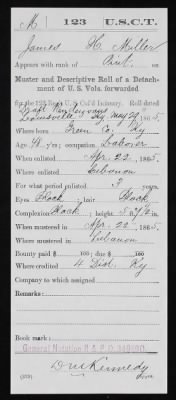 M | 123 | U.S.C.T.
James H. Muller
Appears with rank of Pvt.
Muster and Descriptive Roll of a Detachment of U. S. Vols. forwarded
for the 123 Reg't U. S. Col'd Infantry. Roll dated
Louisville Ky. May 29, 1865.
Where born Green Co., Ky
Age 42 y'rs; occupation Laborer
When enlisted Apr. 22, 1865.
Where enlisted Lebanon
For what period enlisted 3 years.
Eyes Black; hair Black
Complexion Black; height 5 ft. 7½ in.
When mustered in Apr. 22, 1865.
Where mustered in Lebanon
Bounty paid $ 100; due $ 100
Where credited 4 Dist. Ky
Company to which assigned
Remarks:
Book mark:
General Notation R & P O
(339) Kennedy
Copyist.